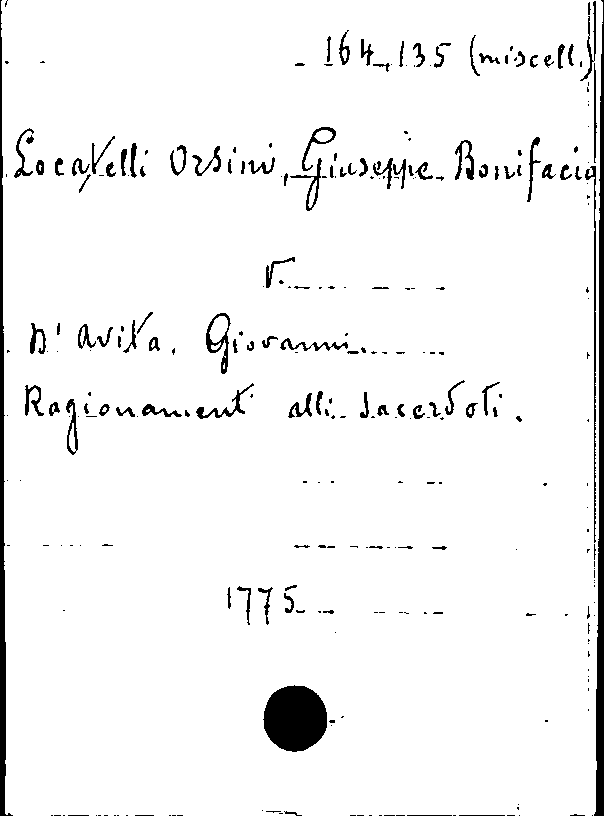 164.135 (miscell.)
Locatelli Orsini, Giuseppe Bonifacio
v.
D' Avita. Giovanni.
Ragionamenti alli sacerdoti.
1775